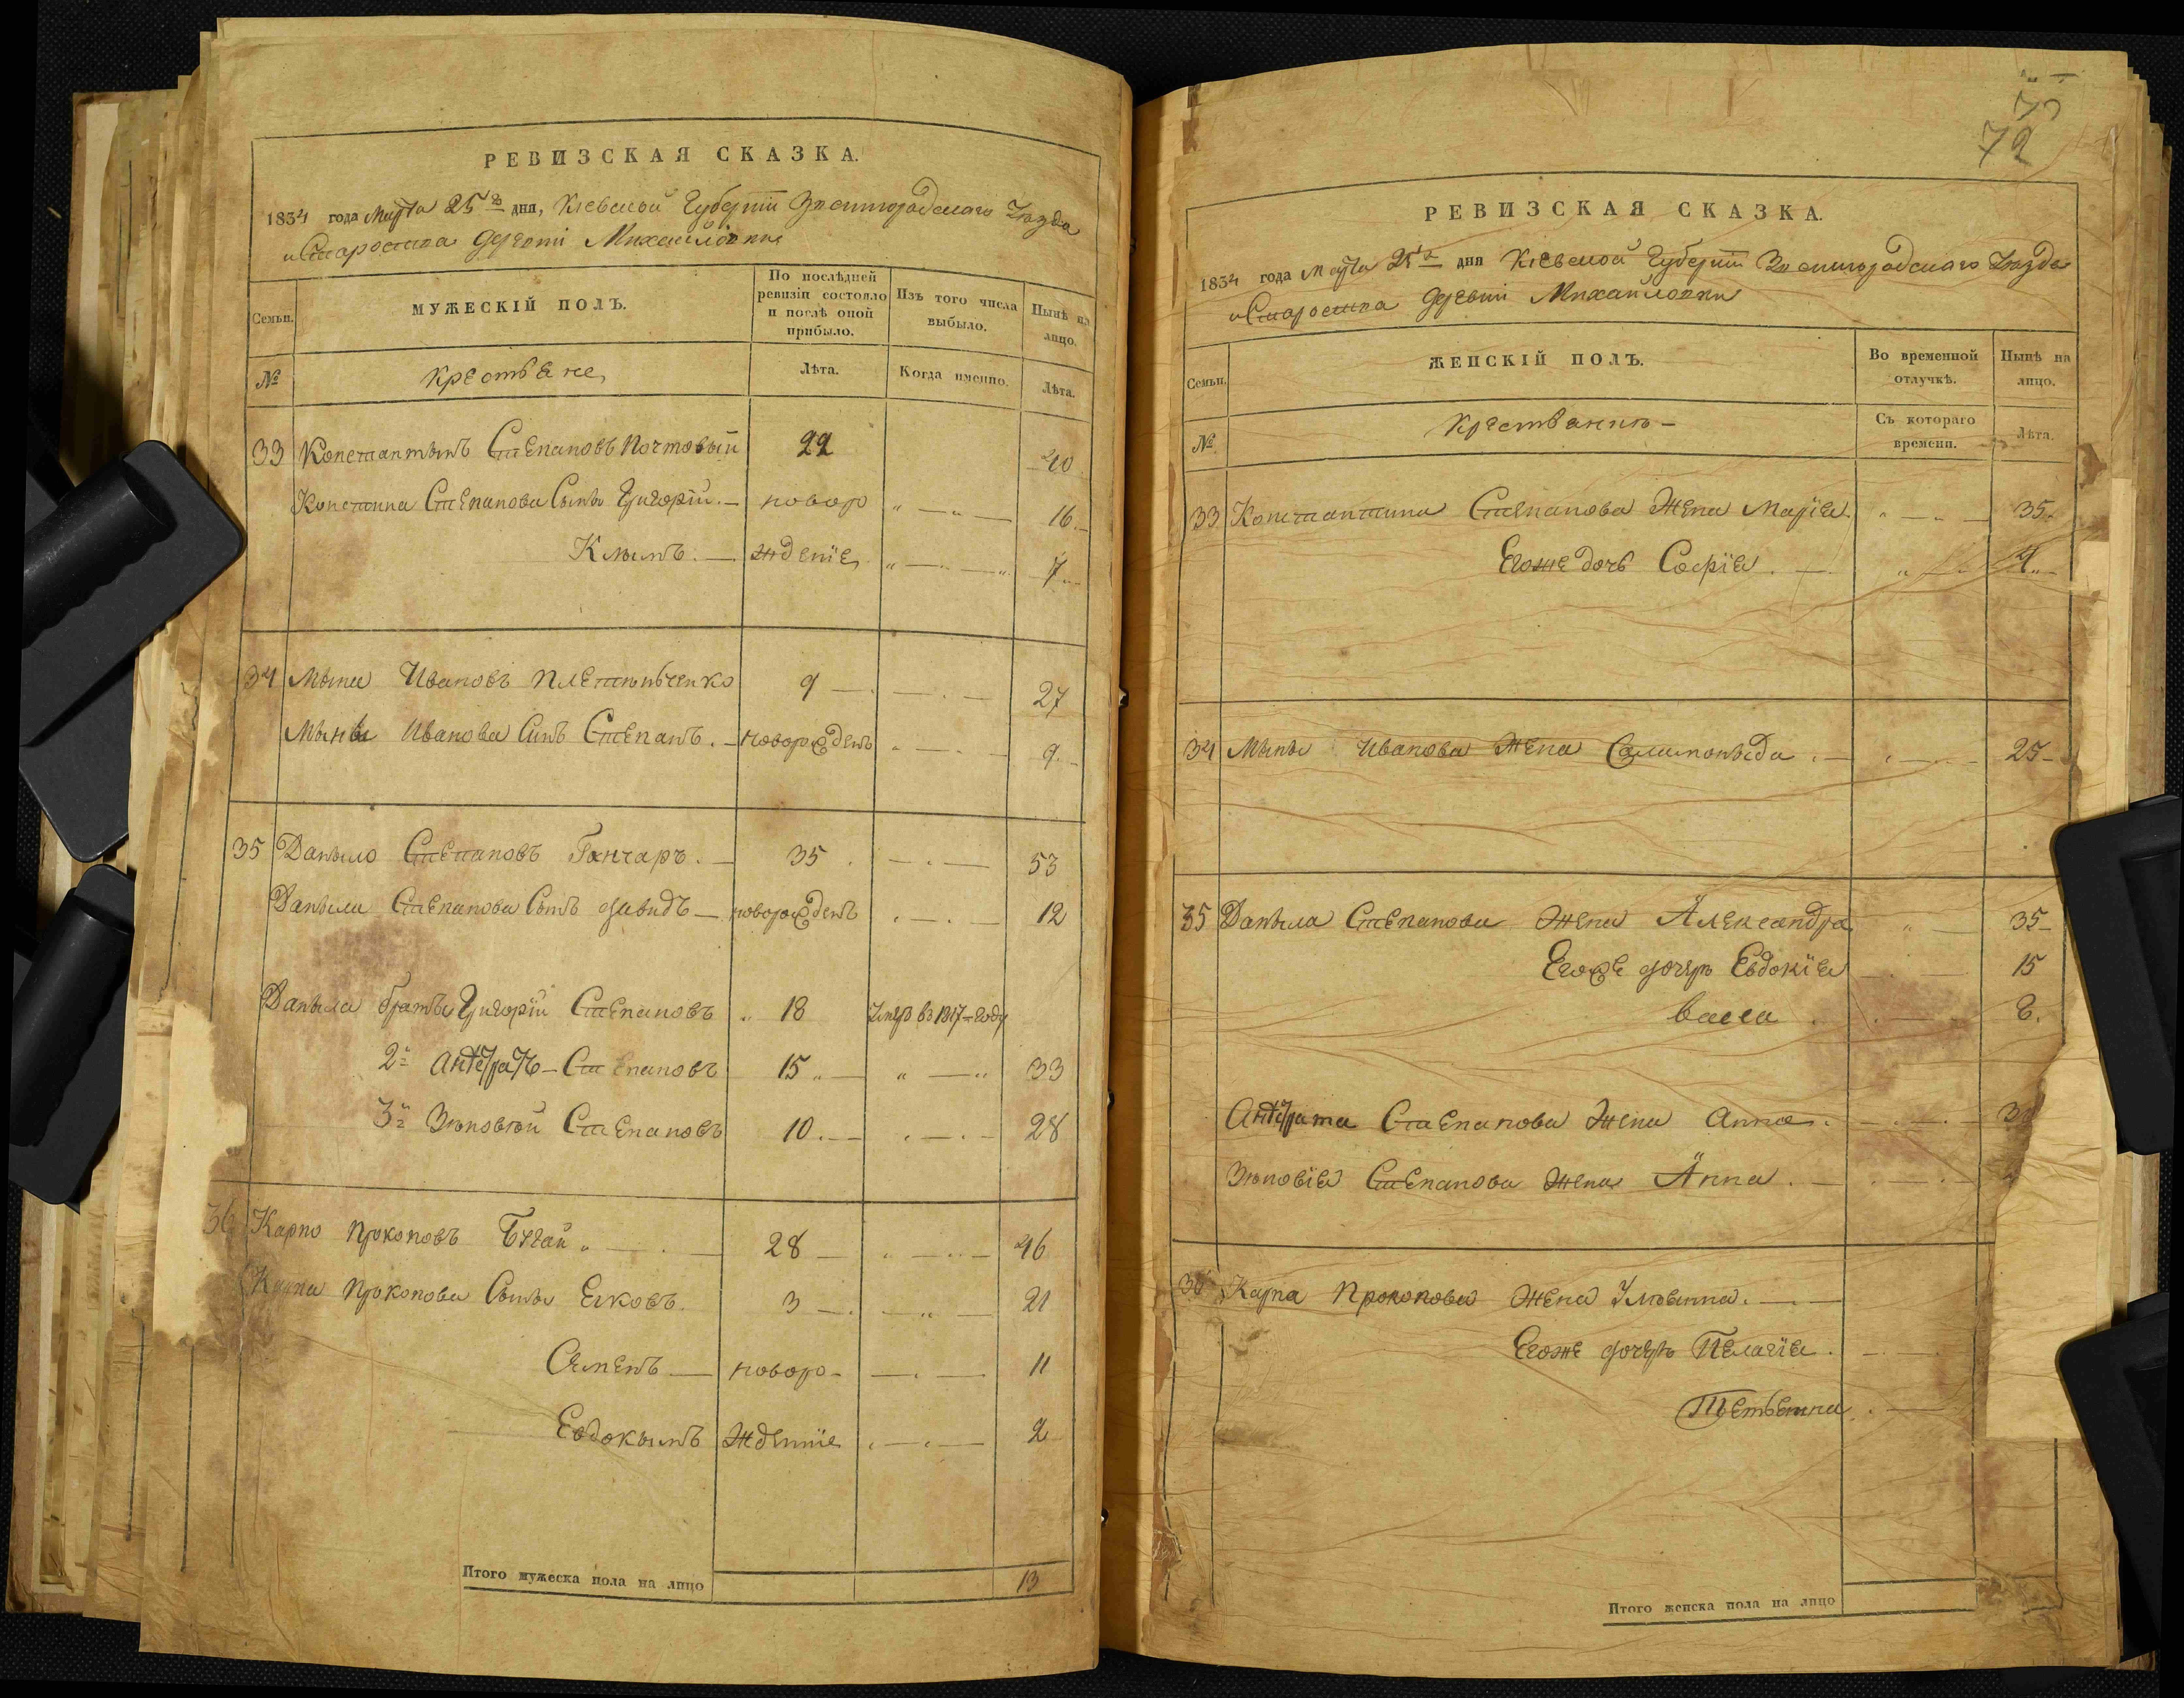 РЕВИЗСКАЯ СКАЗКА.
1834 года Марта 25го дня, Кіевской Губерніи Звенигородскаго Уезда
Староства деревни Михайловки
Семьи.
МУЖЕСКІЙ ПОЛЪ.
По послѣдней ревизіи состояло и послѣ оной прибыло.
Изъ того числа выбыло.
Нынѣ на лицо.
№
Крестьяне
Лѣта.
Когда именно.
Лѣта.
33 Константынъ Степановъ Почтовый 22 40
Констаина Степанова Сыны Григорій.— новоро 16
Клымъ.— жденіе 7
34 Мына Ивановъ 9 27
Мыны Иванова Синъ Степанъ.— новорожденъ 9
35 Даныло Степановъ Ганчаръ.— 35 53
Даныла Степанова Сынъ Давидъ— новорожденъ 12
Даныла братья Григорій Степановъ 18 Умеръ въ 1817 году
2й Степановъ 15 33
3й Зѣновѣй Степановъ 10 28
36 Карпо Прокоповъ Бугай 28 46
Карпа Прокопова Сыны Яковъ. 3 21
Семенъ— новоро- 11
Евдокымъ жденніе 2
Итого мужеска пола на лицо 13
72
РЕВИЗСКАЯ СКАЗКА.
1834 года Марта 25го дня Кіевской Губерніи Звенигородскаго Уезда
Староства деревни Михайловки
Семьи.
ЖЕНСКІЙ ПОЛЪ.
Во временной отлучкѣ.
Нынѣ на лицо.
№
Крестьянкѣ—
Съ котораго времени.
Лѣта.
33 Констаптина Степанова Жена Марія 35.
Егоже дочь Софія. 4
34 Мыны Иванова Жена Саламоныда 25
35 Даныла Степанова Жена Александра 35
Егоже дочеръ Евдокія 15
васса 8.
Степанова Жена Анна.
Зѣновія Степанова Жена Анна.
36 Карпа Прокопова Жена
Егоже дочеръ Пелагія.
Итого женска пола на лицо